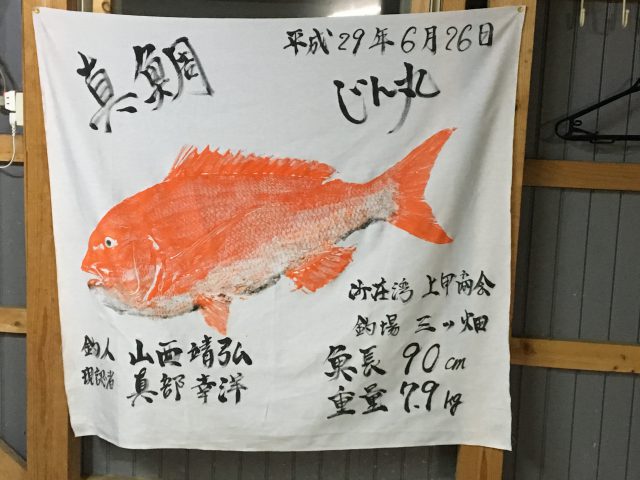 平成29年6月26日
真鯛
じん丸
所在湾 上甲商会
釣場 三ッ畑
魚長 90cm
重量 7.9kg
釣人 山西靖弘
現認者 真部幸洋